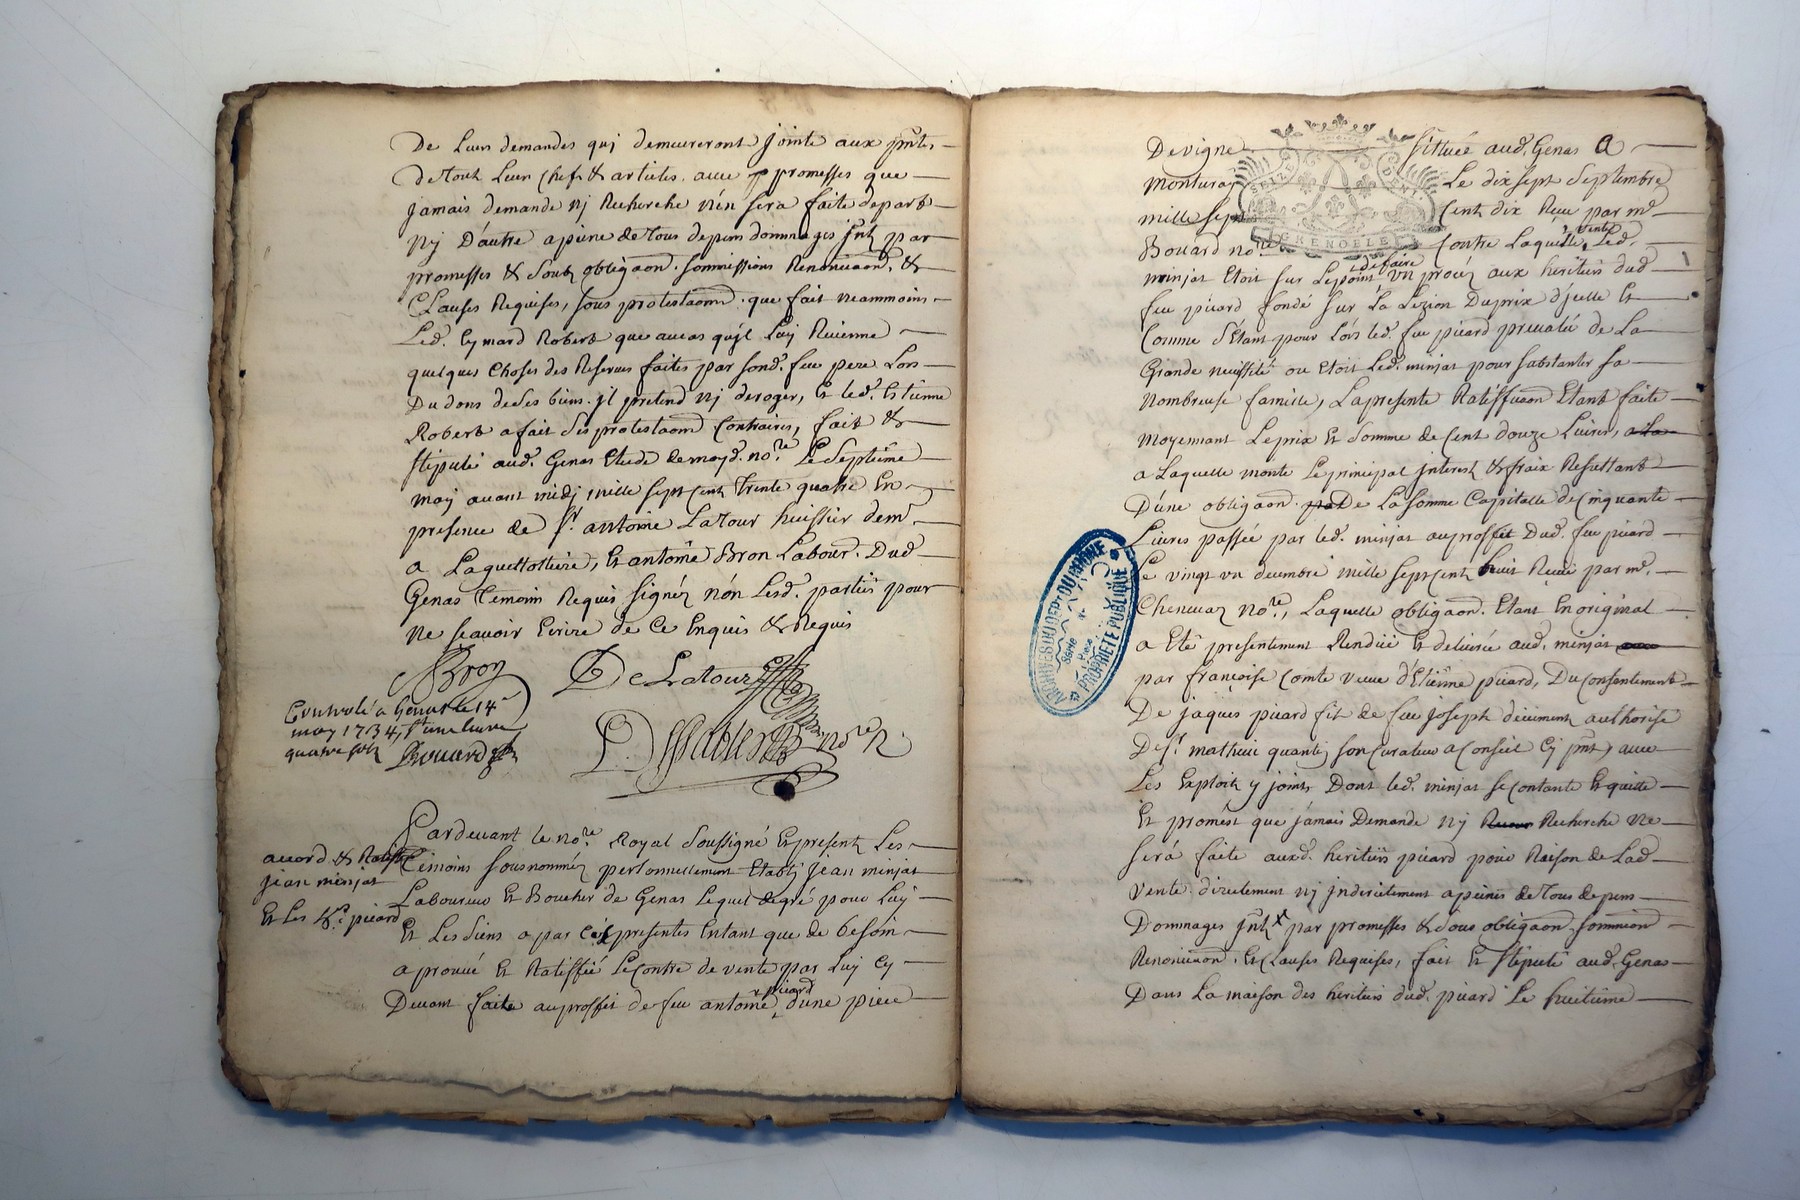 De Leurs demandes quj demeureront jointe aux pntes
de tout Leur Chefs & articles. avec promesses que
jamais demande nj Recherche n'en sera faite depart
nj D'autre a peine de tous depens dommages jnts par
promesses & soubz obligaon. sommissions Renonciaon. &
Clauses Requises, sous protestaon. que fait neammoins
Led. Eymard Robert que aucas qu'jl Luy Reuienne
quelques Choses des Reserues faites par sond. feu pere Lors
Du dons de ses biens. jl pretend nj deroger, Et led. Estienne
Robert a fait ses protestaons Contraires, fait &
stipulé aud. Genas Etude de moyd. nore. Le Septiême
may auant midj mille sept Cent trente quatre En
presence de Sr. antoine Latour huissier demt.
a Laguillottiere, Et antoine Bron Labour. Dud
Genas temoins Requis signéz nón Lesd. parties pour
ne scauoir Ecrire de Ce Enquis & Requis
Bron
DeLatour
Controlé a Genas le 14e
may 1734, Rt une liure
quatre sols
Bouard
nore
accord & Ratiffon
jean minjat
Et les hrs. picard
Pardeuant le nore. Royal soussigné Et present Les
temoins sousnomméz personnellement Etablj jean minjat
Laboureur Et Boucher de Genas Lequel degré pour Luy
Et Les siens a par Ces presentes Entant que de besoin
a prouué Et Ratiffié Le Contrt de vente par Luj Cy
Deuant faite au proffit de feu antoine, d'une piece
picard
De vigne situéé aud. Genas a
monturas Le dix sept Septembre
mille sept Cent dix Receu par me
Bouard nore Contre Laquelle, Led.
vente
GRENOBLE
minjat Etoit sur Le point vn procéz aux heritiers dud
de faire
feu picard fondé sur La Lezion Du prix d'jcelle Et
Comme s'Etant pour Lórs led. feu picard preualu de La
Grande necessité ou Etoit Led. minjat pour substanter sa
Nombreuse famille, La presente Ratiffiçaon Etant faite
moyennant Le prix Et somme de Cent douze Liures,
a Laquelle monte Le principal jnterest & fraix Resultant
D'une obligaon. De La somme Capitalle de Cinquante
Liures passée par led. minjat au proffit Dud. feu picard
Le vingt vn decembre mille sept Cent huit Receüe par me.
Cheneuaz nore, Laquelle obligaon. Etant En original
a Eté presentement Rendüe Et deliurée aud. minjat
par françoise Comte veuue d'Etienne picard, Du Consentement
De jaques picard fils de feu joseph düement authorisé
De sr. mathieu quantj son Curateur a Conseil Cy pnt, auec
Les Exploits y joints Dont led. minjat se Contante Et quitte
Et promést que jámais Demande nj Recherche ne
será faite auxd. heritiers picard pour Raison de Lad
vente directement nj jndirectement a peines de tous depens
Dommages jnts par promesses & sous obligaon. sommission
Renonciaon. Et Clauses Requises, fait Et stipulé aud. Genas
Dans La maison des heritiers dud. picard Le huitiême
ARCHIVES DU DEPT DU RHONE
Série
Pièce
PROPRIETE PUBLIQUE